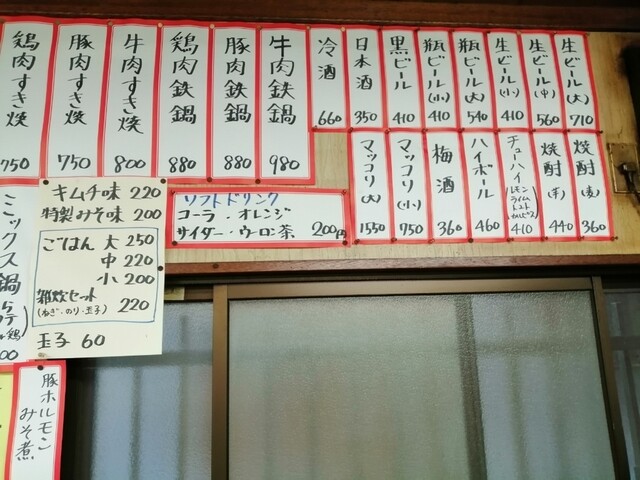 生ビール(大) 710
生ビール(中) 560
生ビール(小) 410
瓶ビール(大) 540
瓶ビール(小) 410
黒ビール 410
日本酒 350
冷酒 660
牛肉鉄鍋 980
豚肉鉄鍋 880
鶏肉鉄鍋 880
牛肉すき焼 800
豚肉すき焼 750
鶏肉すき焼 750
焼酎(麦) 360
焼酎(芋) 440
チューハイ
レモン
ライム
トマト
カルピス
410
ハイボール 460
梅酒 360
マッコリ(小) 750
マッコリ(大) 1550
ソフトドリンク
コーラ・オレンジ
サイダー・ウーロン茶 200円
キムチ味 220
特製みそ味 200
ごはん 大 250
中 220
小 200
雑炊セット
(ねぎ・のり・玉子) 220
玉子 60
ミックス鍋
豚ホルモン
みそ煮